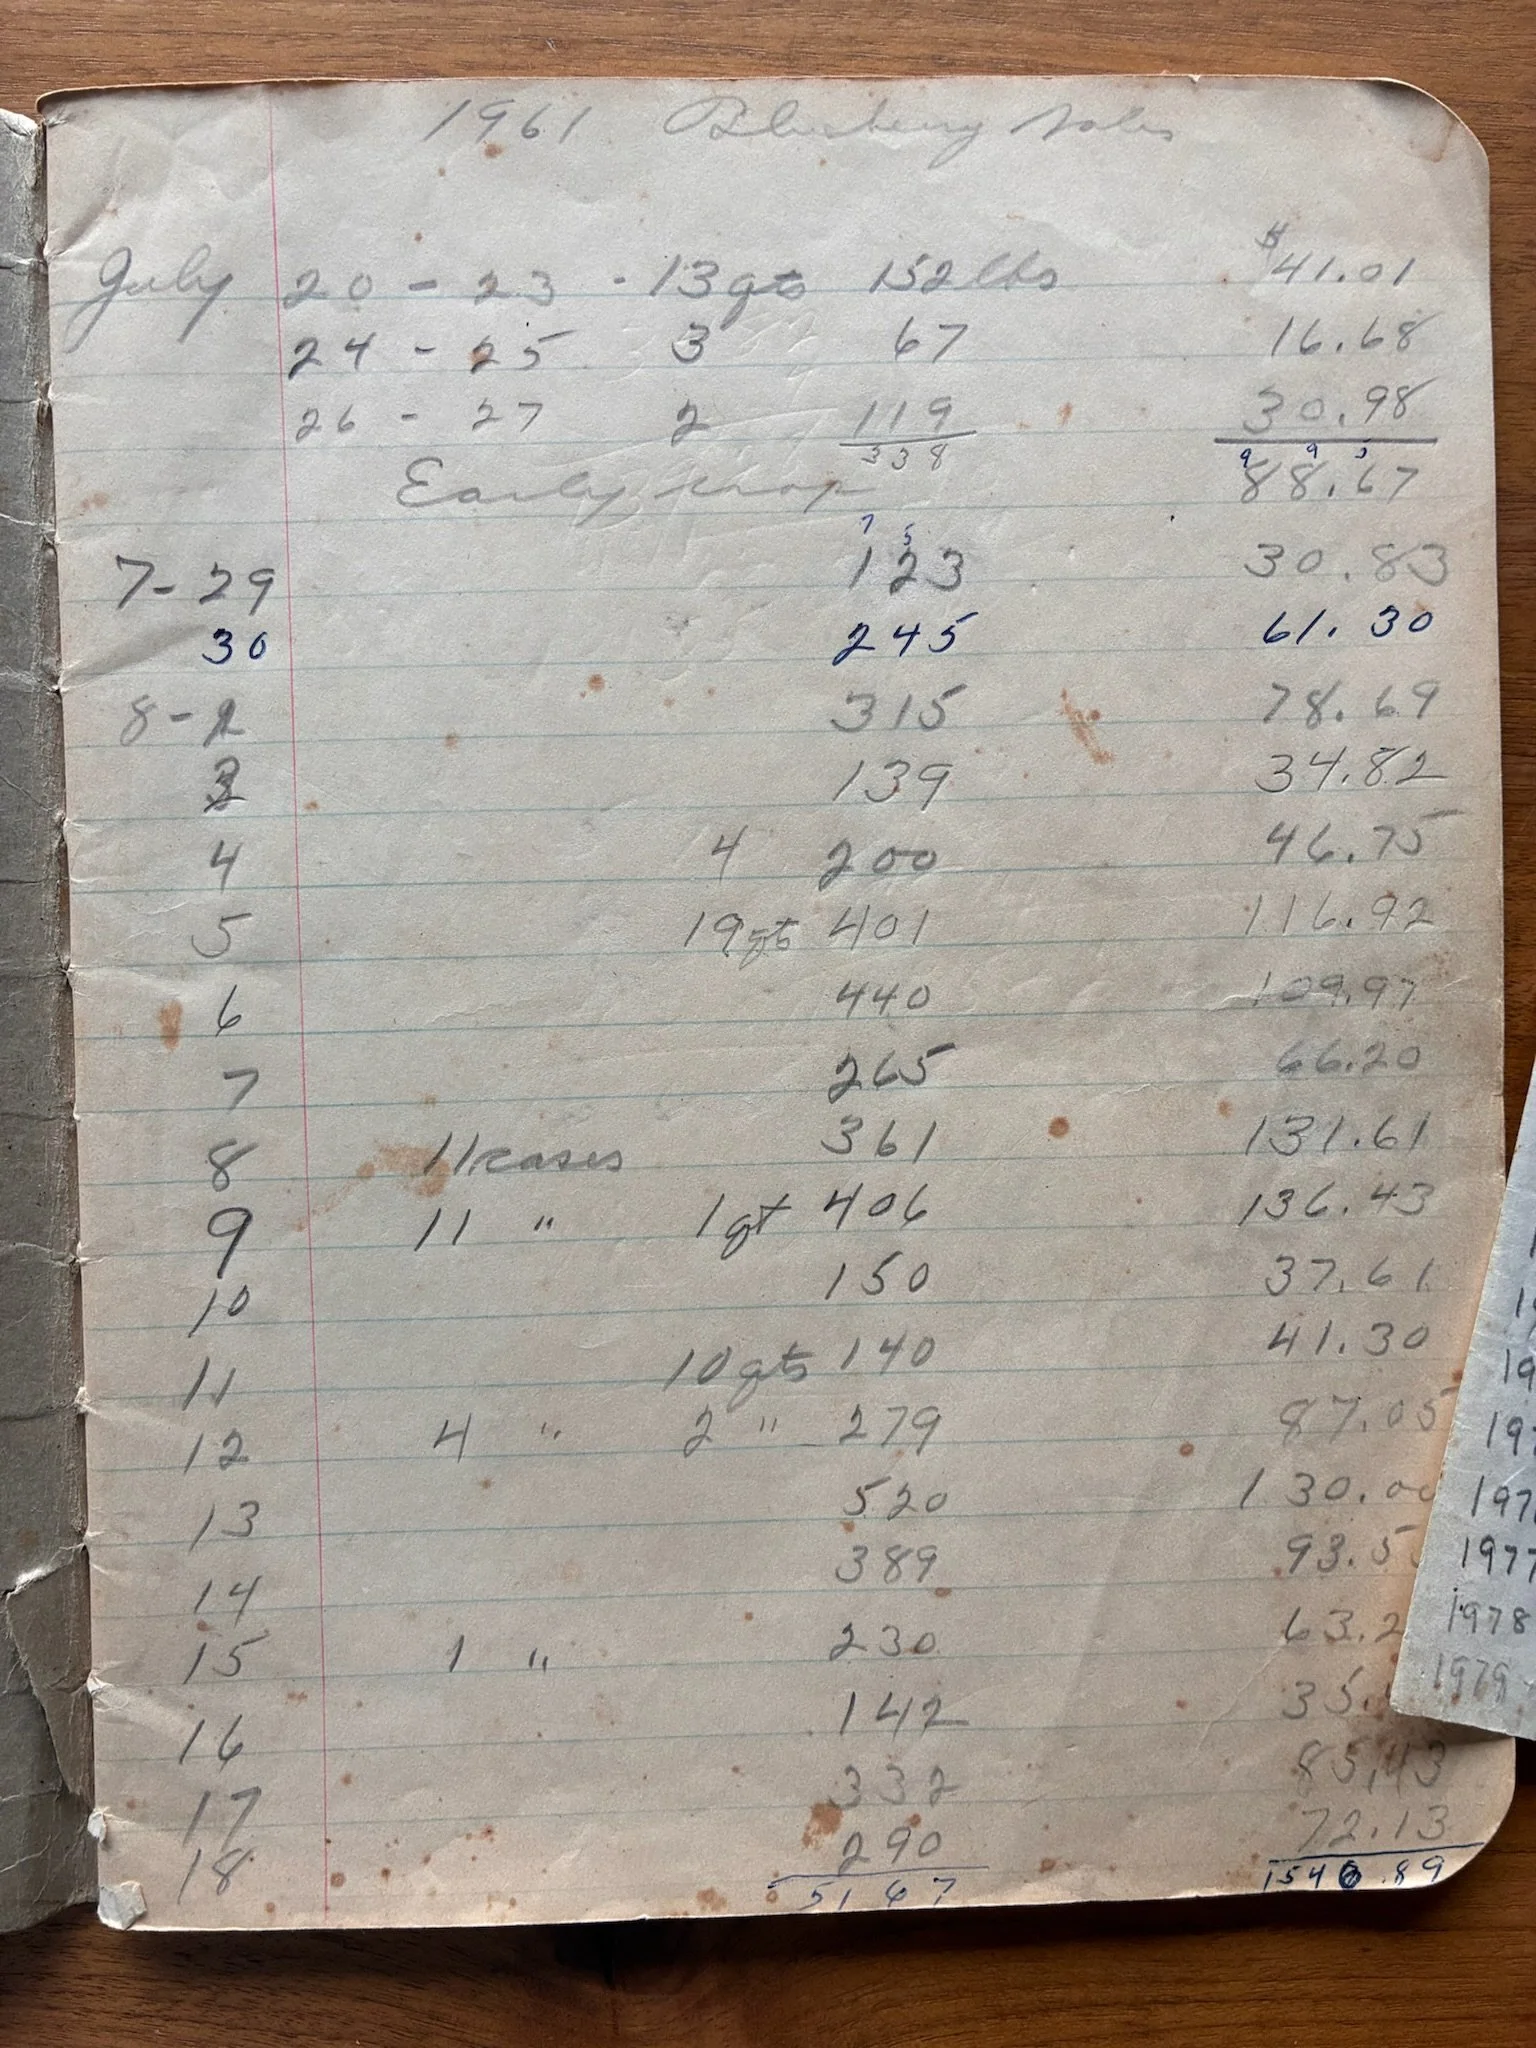 1961 Blueberry Sales
July 20 - 23 - 13 qts 152 lbs $41.01
24 - 25 3 67 16.68
26 - 27 2 119 30.98
338 9 9 3
Early crop 88.67
7 5
7-29 123 30.83
30 245 61.30
8-2 315 78.69
3 139 34.82
4 4 200 46.75
5 19 qts 401 116.92
6 440 109.97
7 265 66.20
8 11 cases 361 131.61
9 11 " 1 qt 406 136.43
10 150 37.61
11 10 qts 140 41.30
12 4 " 2 " 279 87.05
13 520 130.00
14 389 93.5
15 1 " 230 63.2
16 142 35.
17 332 85,43
18 290 72.13
5167 1546.89
19
197
197
1977
1978
1979